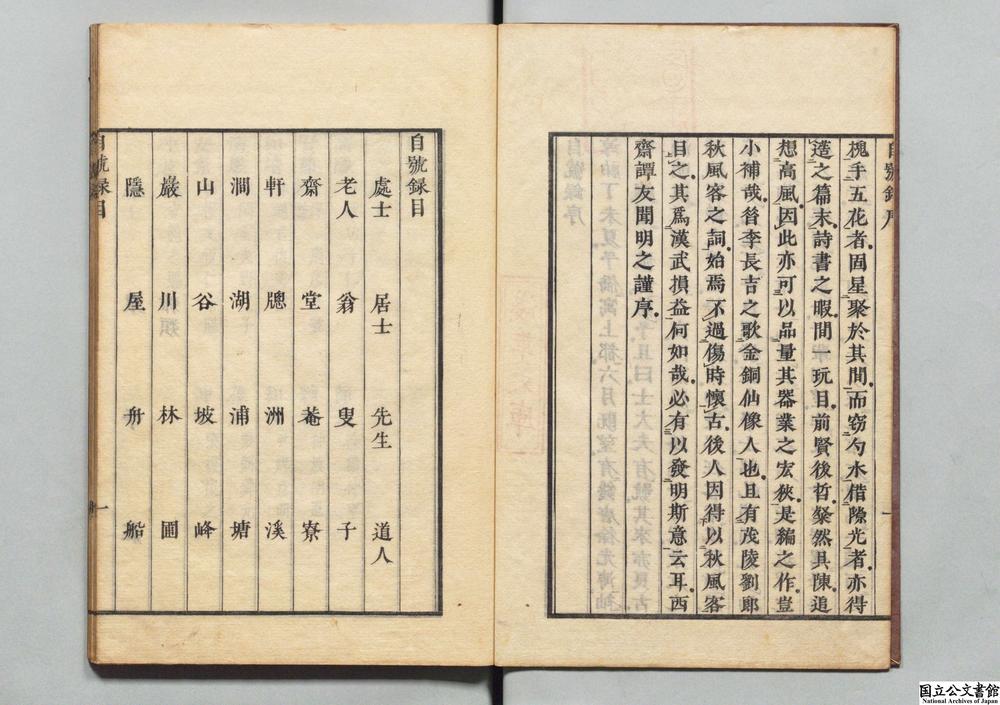 自號錄序
槐手五花者固星聚於其間而窃勺水借隙光者亦得
蓬之篇末詩書之暇間一玩目前賢後哲粲然具陳追
想高風因此亦可以品量其器業之宏狹是編之作豈
小補哉昝李長吉之歌金銅仙像人也且有茂陵劉郎
秋風客之詞始焉不過傷時懷古後人因得以秋風客
目之其爲漢武損益何如哉必有以發明斯意云耳西
齋譚友聞明之謹序
一
自號録目
處士 居士 先生 道人
老人 翁 叟 子
齋 堂 菴 寮
軒 牎 洲 溪
澗 湖 浦 塘
山 谷 坡 峰
巖 川 林 圃
隱 屋 舟 船
自號録目
一
国立公文書館
National Archives of Japan